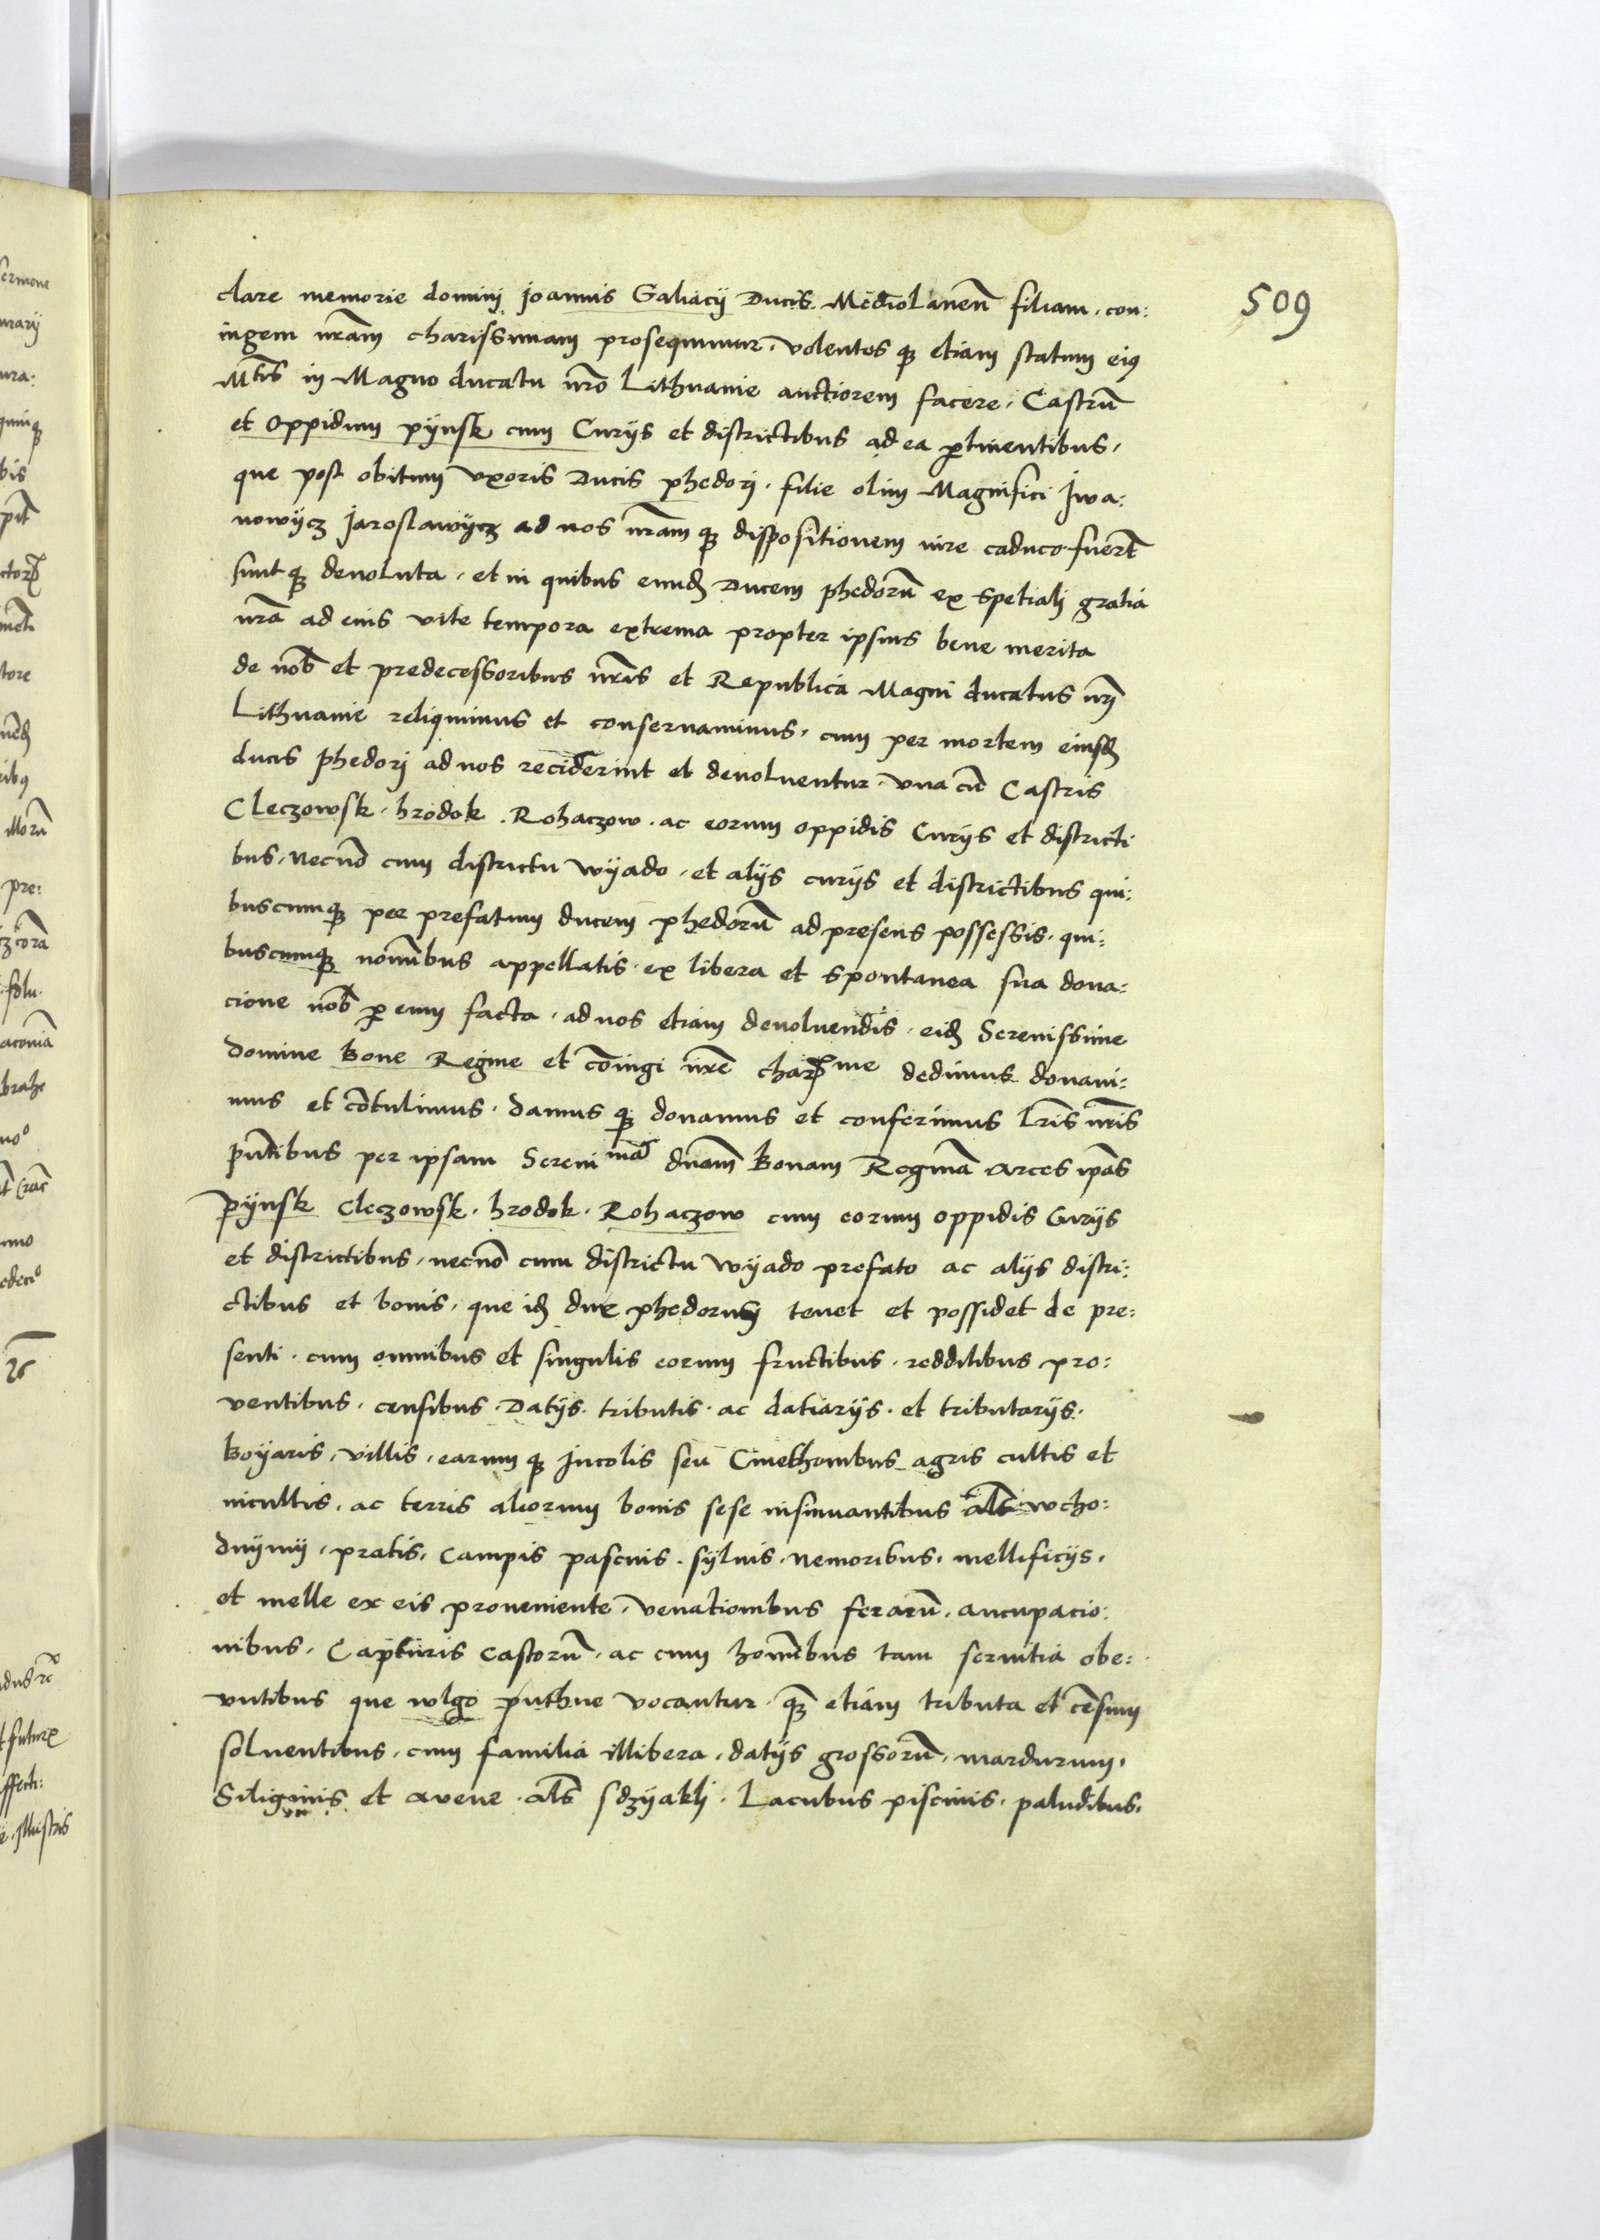 509
clare memorie dominj Joannis Galiacij Ducis Mediolanen̄ filiam, con:
iugem nr̄am charissimam prosequimur, volentes qȝ etiam statum eiꝰ
Mtis in Magno ducatu nr̄o Lithuanie auctiorem facere, Castrū
et oppidum pÿnsk cum Curijs et districtibus ad ea ꝑtinentibus,
que post obitum vxoris Ducis phedorj, filie olim Magnifici Jwa:
nowÿcz Jaroslawÿcz ad nos nr̄am qȝ dispositionem iure caduco fuerūt
sunt qȝ deuoluta, et in quibus eund̄ Ducem phedorū ex spetialj gratia
nr̄a ad eius vite tempora extrema propter ipsius bene merita
de nob̄ et predecessoribus nr̄is et Republica Magni ducatus nr̄j
Lithuanie reliquimus et conseruauimus, cum per mortem eiusd̄
ducis phedorj ad nos reciderint et deuoluentur, vna cū Castris
Cleczowsk, hrodok, Rohaczow, ac eorum oppidis Curijs et districti
bus, necnō cum districtu Wÿado, et alijs curijs et districtibus qui:
buscumqȝ per prefatum ducem phedorū ad presens possessis, qui:
buscumqȝ nominībus appellatis, ex libera et spontanea sua dona:
cione nob̄ ꝑ eum facta, ad nos etiam deuoluendis, eid̄ Serenissime
domine Bone Regine et cōiugi nr̄e charme dedimus donaui:
mus et cōtulimus, damus qȝ donamus et conferimus lr̄is nr̄is
pn̄tibus per ipsam Sereniᵐᵃᵐ dnam̄ Bonam Reginā arces ip̄as
pÿnsk Cleczowsk, hrodok, Rohaczow cum eorum oppidis Curijs
et districtibus, necnō cum districtu Wÿado prefato ac alijs distri:
ctibus et bonis, que id̄ dux phedorus tenet et possidet de pre:
senti, cum omnibus et singulis eorum fructibus, redditibus pro:
uentibus, censibus, Datijs, tributis, ac datiarijs, et tributarijs,
Boyaris, villis, earum qȝ Jncolis seu Cmethonibus agris cultis et
incultis, ac terris aliorum bonis sese insinuantibus als̄ wcho:
dnÿmÿ, pratis, Campis pascuis, sÿluis, nemoribus, mellificijs,
et melle ex eis proueniente, venationibus ferarū, aucupacio:
nibus, Capturis Castorū, ac cum hominībus tam seruitia obe:
untibus que wlgo puthne vocantur, qȝ etiam tributa et cēsum
soluentibus, cum familia illibera, datijs grossorū, mardurum,
Siliginis et auene, als̄ sdzÿaklj, Lacubus piscinis, paludibus,